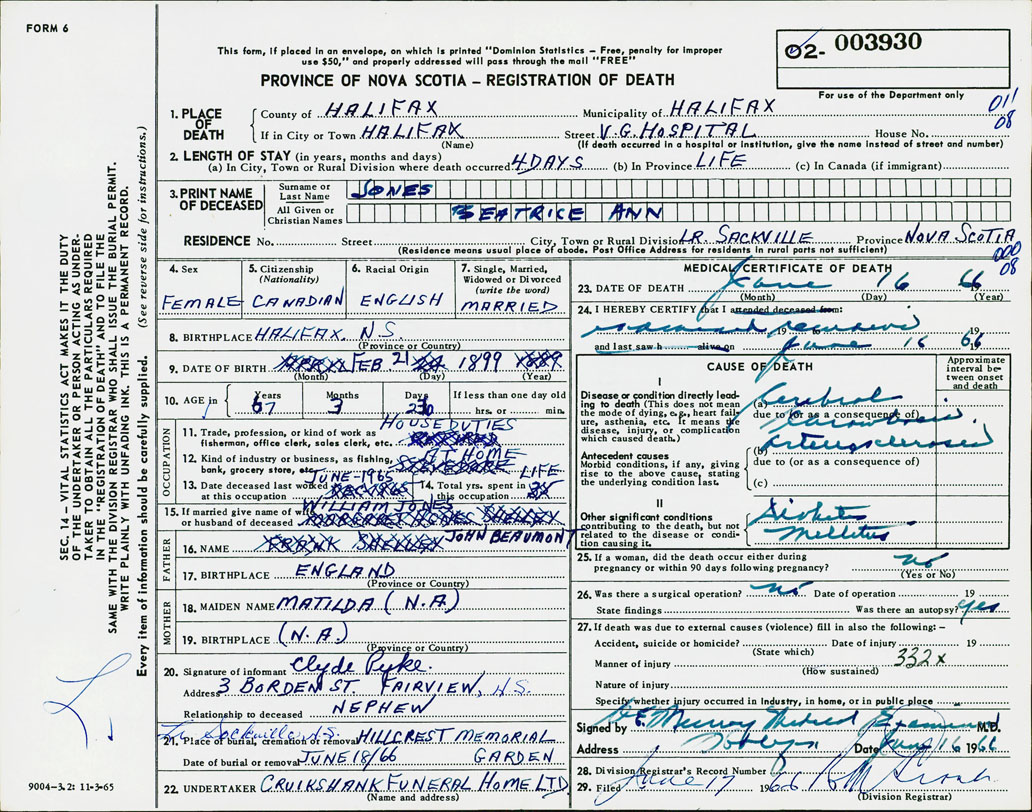 FORM 6
This form, if placed in an envelope, on which is printed "Dominion Statistics – Free, penalty for improper
use $50," and properly addressed will pass through the mail "FREE"
PROVINCE OF NOVA SCOTIA – REGISTRATION OF DEATH
02- 003930
For use of the Department only
011
08
1. PLACE OF DEATH
County of HALIFAX Municipality of HALIFAX
If in City or Town HALIFAX Street V.G. HOSPITAL House No.
(Name) (If death occurred in a hospital or institution, give the name instead of street and number)
2. LENGTH OF STAY (in years, months and days)
(a) In City, Town or Rural Division where death occurred 4 DAYS (b) In Province LIFE (c) In Canada (if immigrant)
3. PRINT NAME OF DECEASED
Surname or Last Name JONES
All Given or Christian Names BEATRICE ANN
RESIDENCE No. Street City, Town or Rural Division LR. SACKVILLE Province NOVA SCOTIA
(Residence means usual place of abode. Post Office Address for residents in rural parts not sufficient)
000
08
4. Sex
FEMALE
5. Citizenship
(Nationality)
CANADIAN
6. Racial Origin
ENGLISH
7. Single, Married,
Widowed or Divorced
(write the word)
MARRIED
8. BIRTHPLACE HALIFAX, N.S.
(Province or Country)
9. DATE OF BIRTH FEB. 21 1899
(Month) (Day) (Year)
10. AGE in
Years Months Days If less than one day old
67 3 hrs. or min.
OCCUPATION
11. Trade, profession, or kind of work as HOUSEDUTIES
fisherman, office clerk, sales clerk, etc.
12. Kind of industry or business, as fishing, AT HOME
bank, grocery store, etc.
13. Date deceased last worked JUNE-1965
at this occupation
14. Total yrs. spent in LIFE
this occupation
15. If married give name of wife WILLIAM JONES
or husband of deceased
FATHER
16. NAME JOHN BEAUMONT
17. BIRTHPLACE ENGLAND
(Province or Country)
MOTHER
18. MAIDEN NAME MATILDA (N.A.)
19. BIRTHPLACE (N.A.)
(Province or Country)
20. Signature of informant Clyde Pyke.
Address 3 BORDEN ST. FAIRVIEW, N.S.
Relationship to deceased NEPHEW
Lr Sackville, N.S.
21. Place of burial, cremation or removal HILLCREST MEMORIAL
Date of burial or removal JUNE 18/66 GARDEN
22. UNDERTAKER CRUIKSHANK FUNERAL HOME LTD
(Name and address)
MEDICAL CERTIFICATE OF DEATH
23. DATE OF DEATH June 16 66
(Month) (Day) (Year)
24. I HEREBY CERTIFY that I attended deceased from:
examined remains 19 19
and last saw h alive on June 16 1966
CAUSE OF DEATH
Approximate
interval be-
tween onset
and death
I
Disease or condition directly lead-
ing to death (This does not mean
the mode of dying, e.g., heart fail-
ure, asthenia, etc. It means the
disease, injury, or complication
which caused death.)
(a) Cerebral
due to (or as a consequence of)
Thrombosis
Arteriosclerosis
Antecedent causes
Morbid conditions, if any, giving
rise to the above cause, stating
the underlying condition last.
(b)
due to (or as a consequence of)
(c)
II
Other significant conditions
contributing to the death, but not
related to the disease or condi-
tion causing it.
Diabetes
Mellitus
25. If a woman, did the death occur either during
pregnancy or within 90 days following pregnancy? No
(Yes or No)
26. Was there a surgical operation? No Date of operation 19
State findings Was there an autopsy? Yes
27. If death was due to external causes (violence) fill in also the following: –
Accident, suicide or homicide? Date of injury 19
(State which)
Manner of injury 332x
(How sustained)
Nature of injury
Specify whether injury occurred in Industry, in home, or in public place
Signed by Murray Medical Examiner M.D.
Address Date June 16 1966
28. Division Registrar's Record Number
29. Filed June 17 1966
(Division Registrar)
SEC. 14 – VITAL STATISTICS ACT MAKES IT THE DUTY
OF THE UNDERTAKER OR PERSON ACTING AS UNDER-
TAKER TO OBTAIN ALL THE PARTICULARS REQUIRED
IN THE "REGISTRATION OF DEATH" AND TO FILE THE
SAME WITH THE DIVISION REGISTRAR WHO SHALL ISSUE THE BURIAL PERMIT.
WRITE PLAINLY WITH UNFADING INK. THIS IS A PERMANENT RECORD.
Every item of information should be carefully supplied. (See reverse side for instructions.)
9004-3.2: 11-3-65